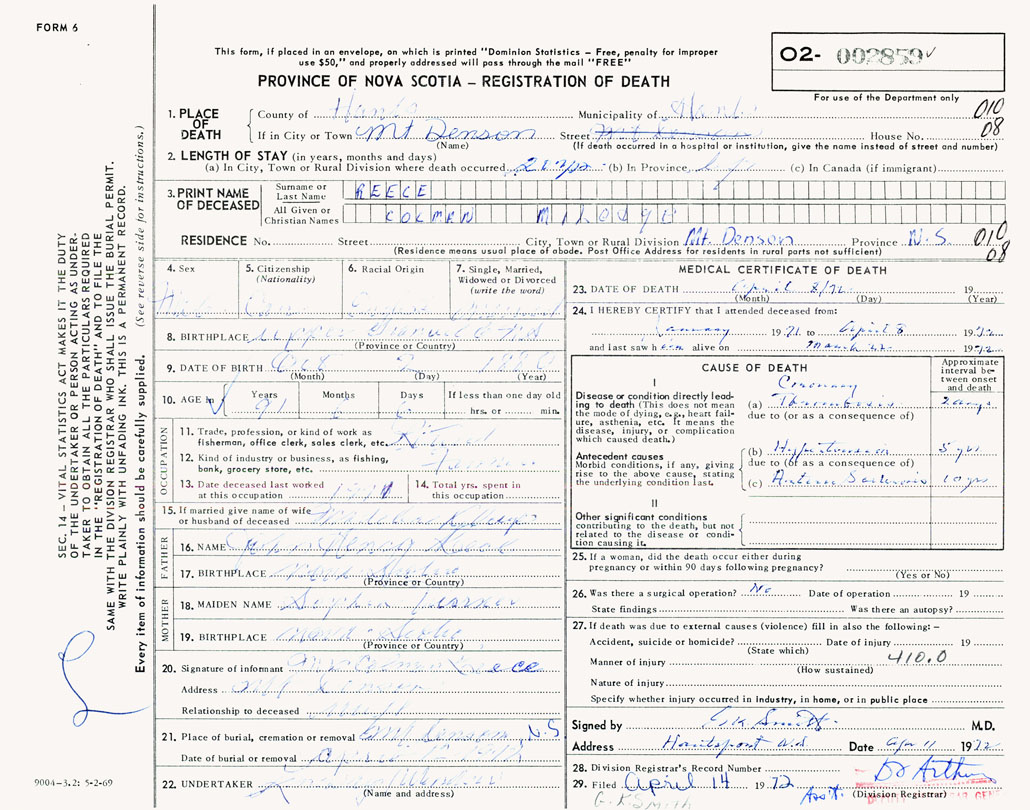 FORM 6
This form, if placed in an envelope, on which is printed "Dominion Statistics – Free, penalty for improper
use $50," and properly addressed will pass through the mail "FREE"
PROVINCE OF NOVA SCOTIA – REGISTRATION OF DEATH
O2- 002859
For use of the Department only
010
08
1. PLACE OF DEATH
County of Hants Municipality of Hants
If in City or Town Mt Denson Street House No.
(Name) (If death occurred in a hospital or institution, give the name instead of street and number)
2. LENGTH OF STAY (in years, months and days)
(a) In City, Town or Rural Division where death occurred (b) In Province life (c) In Canada (if immigrant)
3. PRINT NAME OF DECEASED
Surname or Last Name REECE
All Given or Christian Names COLMAN
RESIDENCE No. Street City, Town or Rural Division Mt. Denson Province N.S.
(Residence means usual place of abode. Post Office Address for residents in rural parts not sufficient)
010
08
4. Sex
5. Citizenship
(Nationality)
6. Racial Origin
7. Single, Married,
Widowed or Divorced
(write the word)
8. BIRTHPLACE Upper
(Province or Country)
9. DATE OF BIRTH Oct 2
(Month) (Day) (Year)
10. AGE in Years Months Days If less than one day old
91 6 hrs. or min.
OCCUPATION
11. Trade, profession, or kind of work as
fisherman, office clerk, sales clerk, etc. Retired
12. Kind of industry or business, as fishing,
bank, grocery store, etc.
13. Date deceased last worked
at this occupation
14. Total yrs. spent in
this occupation
15. If married give name of wife
or husband of deceased
FATHER
16. NAME Henry
17. BIRTHPLACE Nova Scotia
(Province or Country)
MOTHER
18. MAIDEN NAME
19. BIRTHPLACE Nova Scotia
(Province or Country)
20. Signature of informant Mrs Reece
Address Mt Denson
Relationship to deceased
21. Place of burial, cremation or removal Mt Denson N.S
Date of burial or removal
22. UNDERTAKER
(Name and address)
MEDICAL CERTIFICATE OF DEATH
23. DATE OF DEATH April 8/72 19
(Month) (Day) (Year)
24. I HEREBY CERTIFY that I attended deceased from:
January 1971 to April 8 1972
and last saw him alive on March 22 1972
CAUSE OF DEATH
Approximate
interval be-
tween onset
and death
I
Disease or condition directly lead-
ing to death (This does not mean
the mode of dying, e.g., heart fail-
ure, asthenia, etc. It means the
disease, injury, or complication
which caused death.)
Coronary
(a) Thrombosis 2 days
due to (or as a consequence of)
Antecedent causes
Morbid conditions, if any, giving
rise to the above cause, stating
the underlying condition last.
(b) Hypertension 5 yrs
due to (or as a consequence of)
(c) 10 yrs
II
Other significant conditions
contributing to the death, but not
related to the disease or condi-
tion causing it.
25. If a woman, did the death occur either during
pregnancy or within 90 days following pregnancy?
(Yes or No)
26. Was there a surgical operation? No Date of operation 19
State findings Was there an autopsy?
27. If death was due to external causes (violence) fill in also the following: –
Accident, suicide or homicide? Date of injury 19
(State which)
Manner of injury 410.0
(How sustained)
Nature of injury
Specify whether injury occurred in industry, in home, or in public place
Signed by G K Smith M.D.
Address Hantsport N.S Date Apr 11 1972
28. Division Registrar's Record Number
29. Filed April 14 1972
(Division Registrar)
G.K. Smith Ass't.
SEC. 14 – VITAL STATISTICS ACT MAKES IT THE DUTY
OF THE UNDERTAKER OR PERSON ACTING AS UNDER-
TAKER TO OBTAIN ALL THE PARTICULARS REQUIRED
IN THE "REGISTRATION OF DEATH" AND TO FILE THE
SAME WITH THE DIVISION REGISTRAR WHO SHALL ISSUE THE BURIAL PERMIT.
WRITE PLAINLY WITH UNFADING INK. THIS IS A PERMANENT RECORD.
Every item of information should be carefully supplied. (See reverse side for instructions.)
9004-3.2: 5-2-69